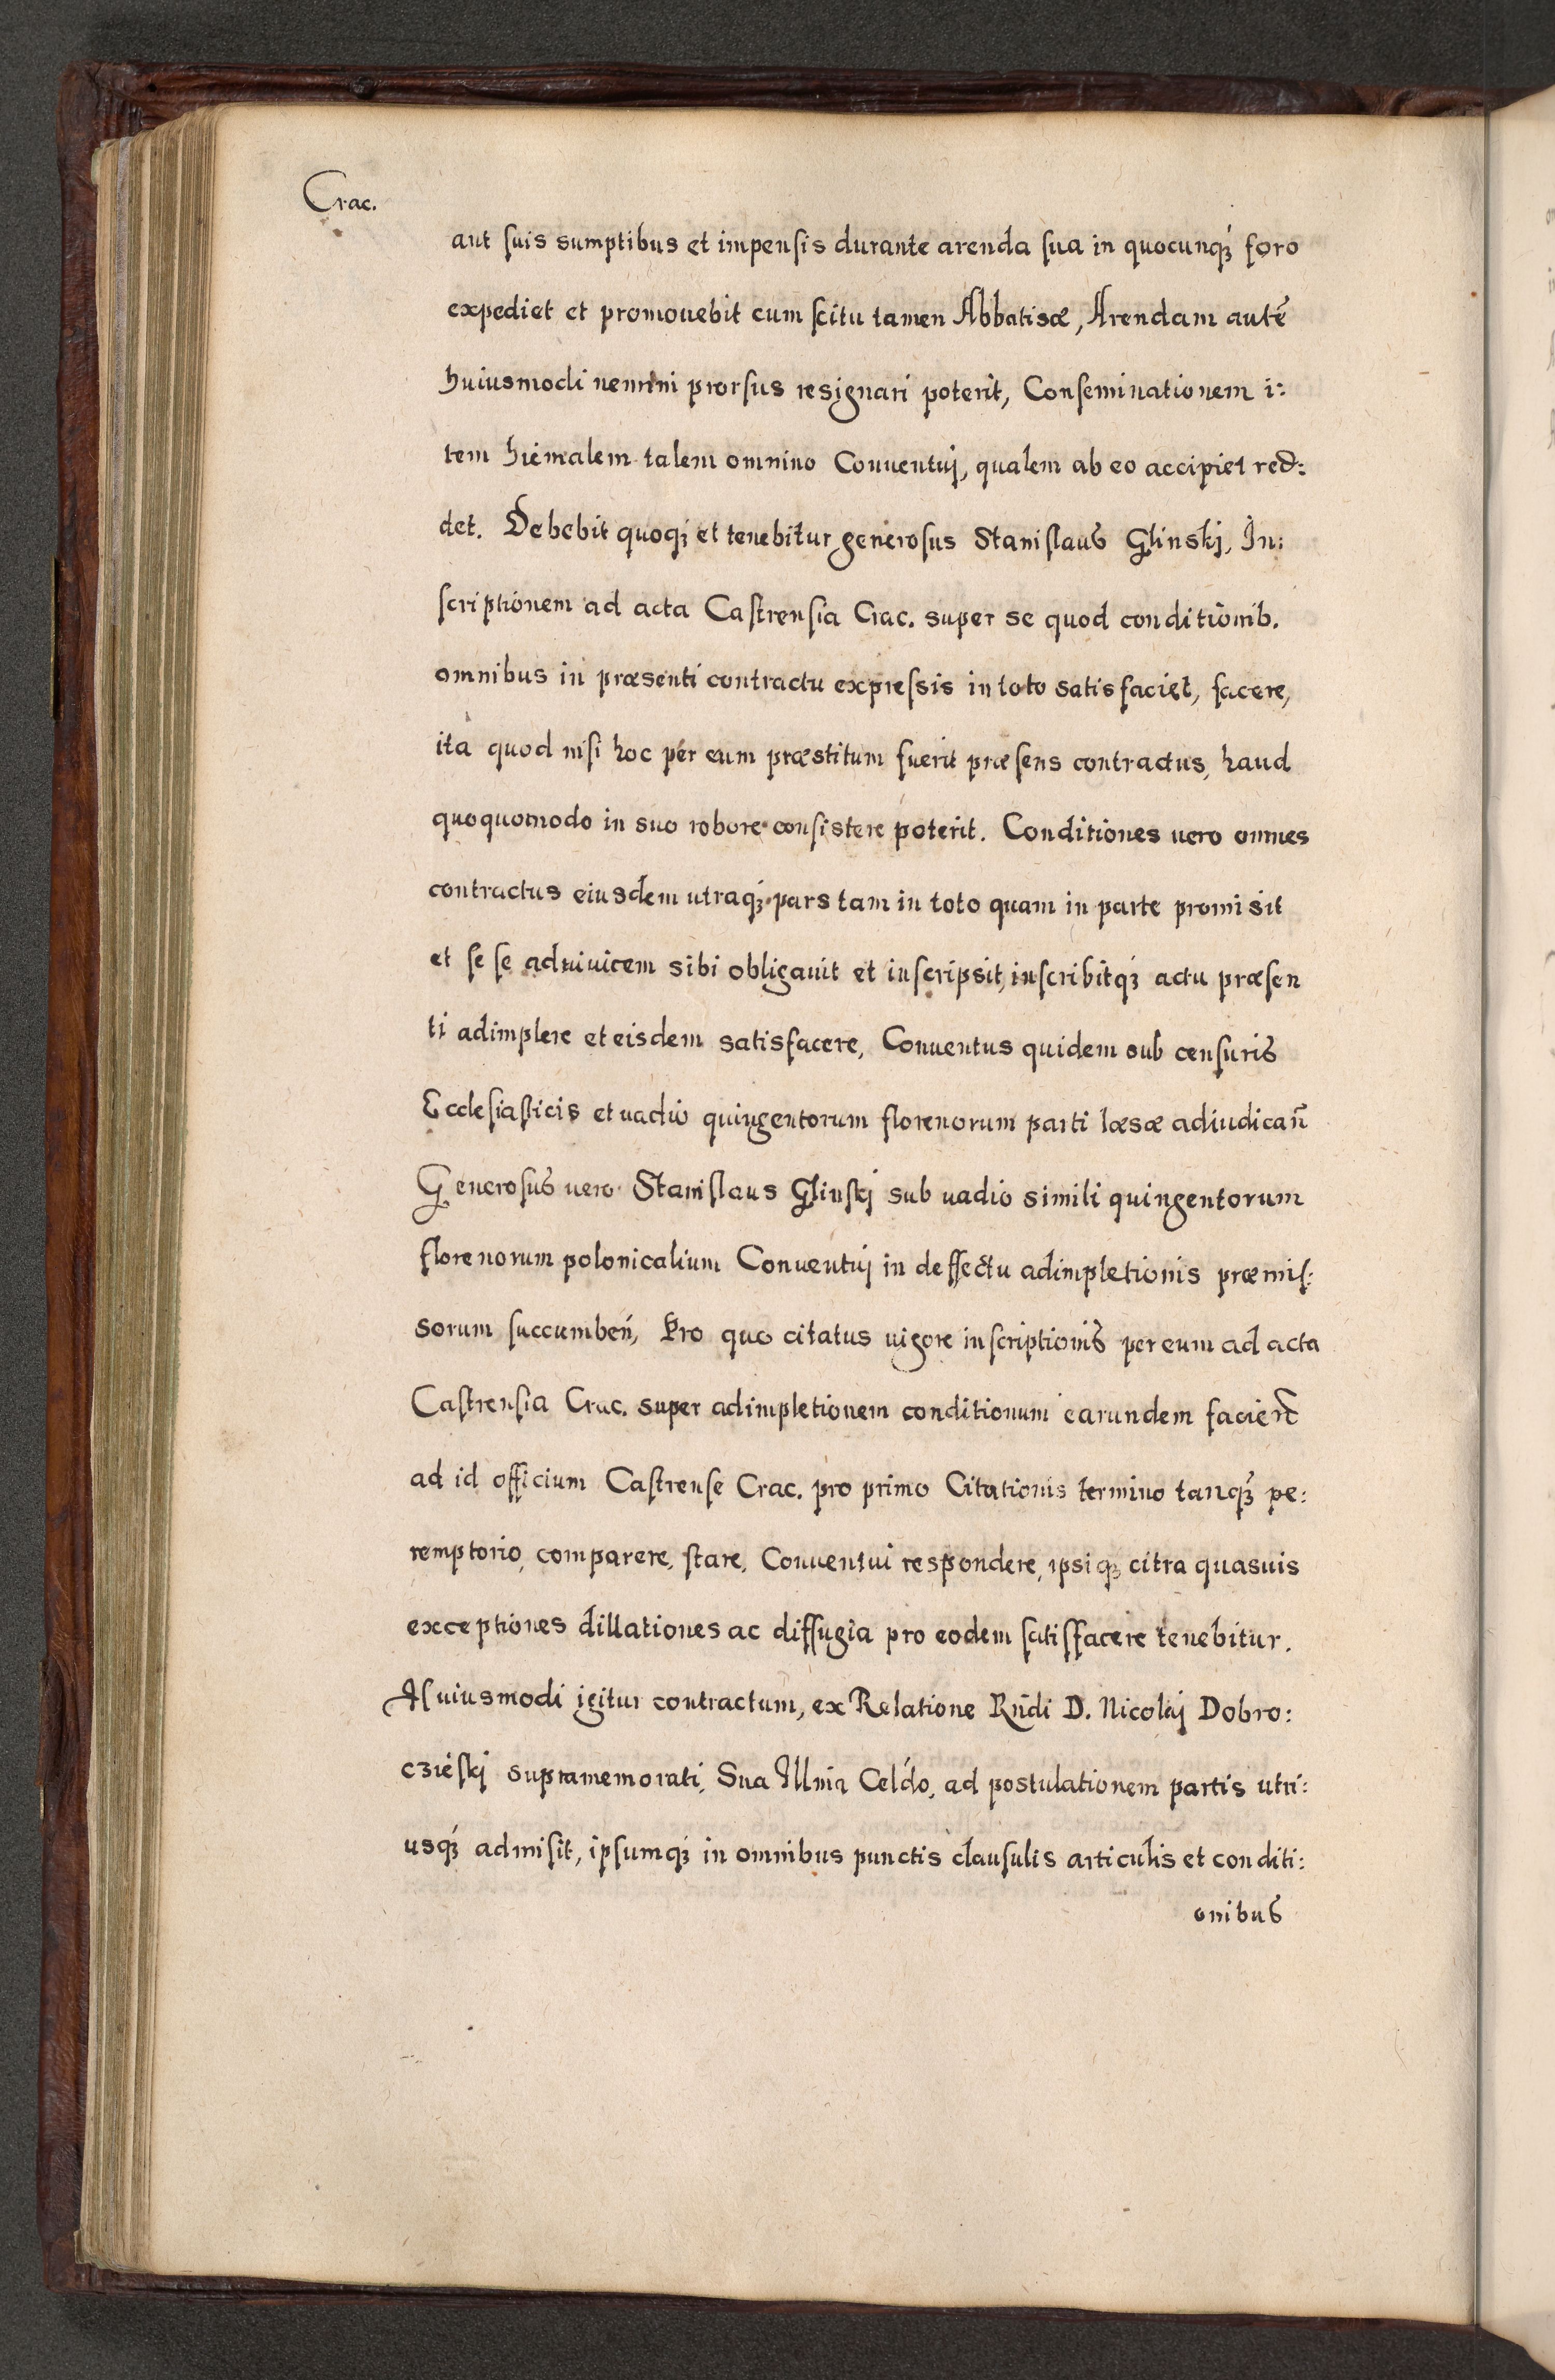 Crac.
aut suis sumptibus et impensis durante arenda sua in quocunqȝ foro
expediet et promouebit cum scitu tamen Abbatisæ, Arendam autē
huiusmodi nemini prorsus resignari poterit, Conseminationem i:
tem hiemalem talem omnino Conuentuj, qualem ab eo accipiet red:
det. Debebit quoqȝ et tenebitur generosus Stanislaus Glinskj, In:
scriptionem ad acta Castrensia Crac. super se quod conditionib.
omnibus in præsenti contractu expressis in toto satisfaciet, facere,
ita quod nisi hoc per eum præstitum fuerit præsens contractus, haud
quoquomodo in suo robore consistere poterit. Conditiones uero omnes
contractus eiusdem utraqȝ pars tam in toto quam in parte promisit
et se se adinuicem sibi obligauit et inscripsit, inscribitqȝ actu præsen
ti adimplere et eisdem satisfacere, Conuentus quidem sub censuris
Ecclesiasticis et uadio quingentorum florenorum parti læsæ adiudicañ
Generosus uero Stanislaus Glinskj sub uadio simili quingentorum
florenorum polonicalium Conuentuj in deffectu adimpletionis præmis:
sorum succumbeñ, Pro quo citatus uigore inscriptionis per eum ad acta
Castrensia Crac. super adimpletionem conditionum earundem facieñ
ad id officium Castrense Crac. pro primo Citationis termino tanqȝ pe:
remptorio, comparere, stare, Conuentui respondere, ipsiqȝ citra quasuis
exceptiones dillationes ac diffugia pro eodem satisfacere tenebitur.
Huiusmodi igitur contractum, ex Relatione Rñdi D. Nicolaj Dobro:
czieskj supramemorati, Sua Illmã Celdo, ad postulationem partis utri:
usqȝ admisit, ipsumqȝ in omnibus punctis clausulis articulis et conditi:
onibus